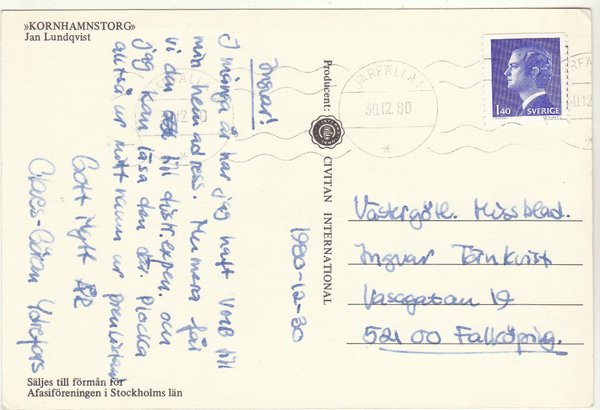 »KORNHAMNSTORG»
Jan Lundqvist
Ingvar!
I många år har jag haft VMB till
min hemadress. Numera får
vi den till distr.expen. och
jag kan läsa den där. Plocka
alltså ur mitt namn ur prenlistan!
Gott Nytt År
Claes-Göran
1980-12-30
Producent:
CIVITAN INTERNATIONAL
JÄRFÄLLA 1
30.12.80
1.40 SVERIGE
Västergötl. Missblad.
Ingvar Törnkvist
Vasagatan 19
521 00 Falköping.
Säljes till förmån för
Afasiföreningen i Stockholms län